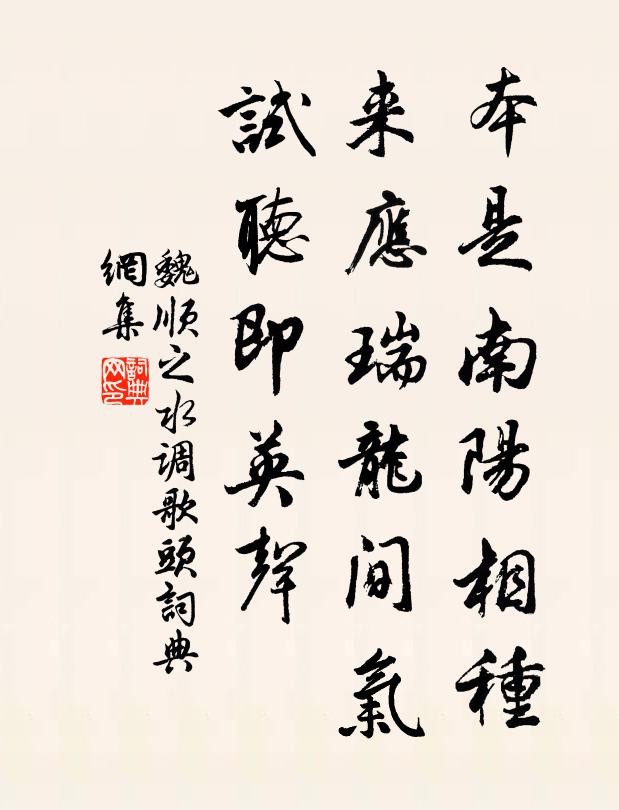 本是南陽相種
来應瑞龍间氣
試聽即英聲
魏順之水调歌頭詞典
網集
詞典
网印